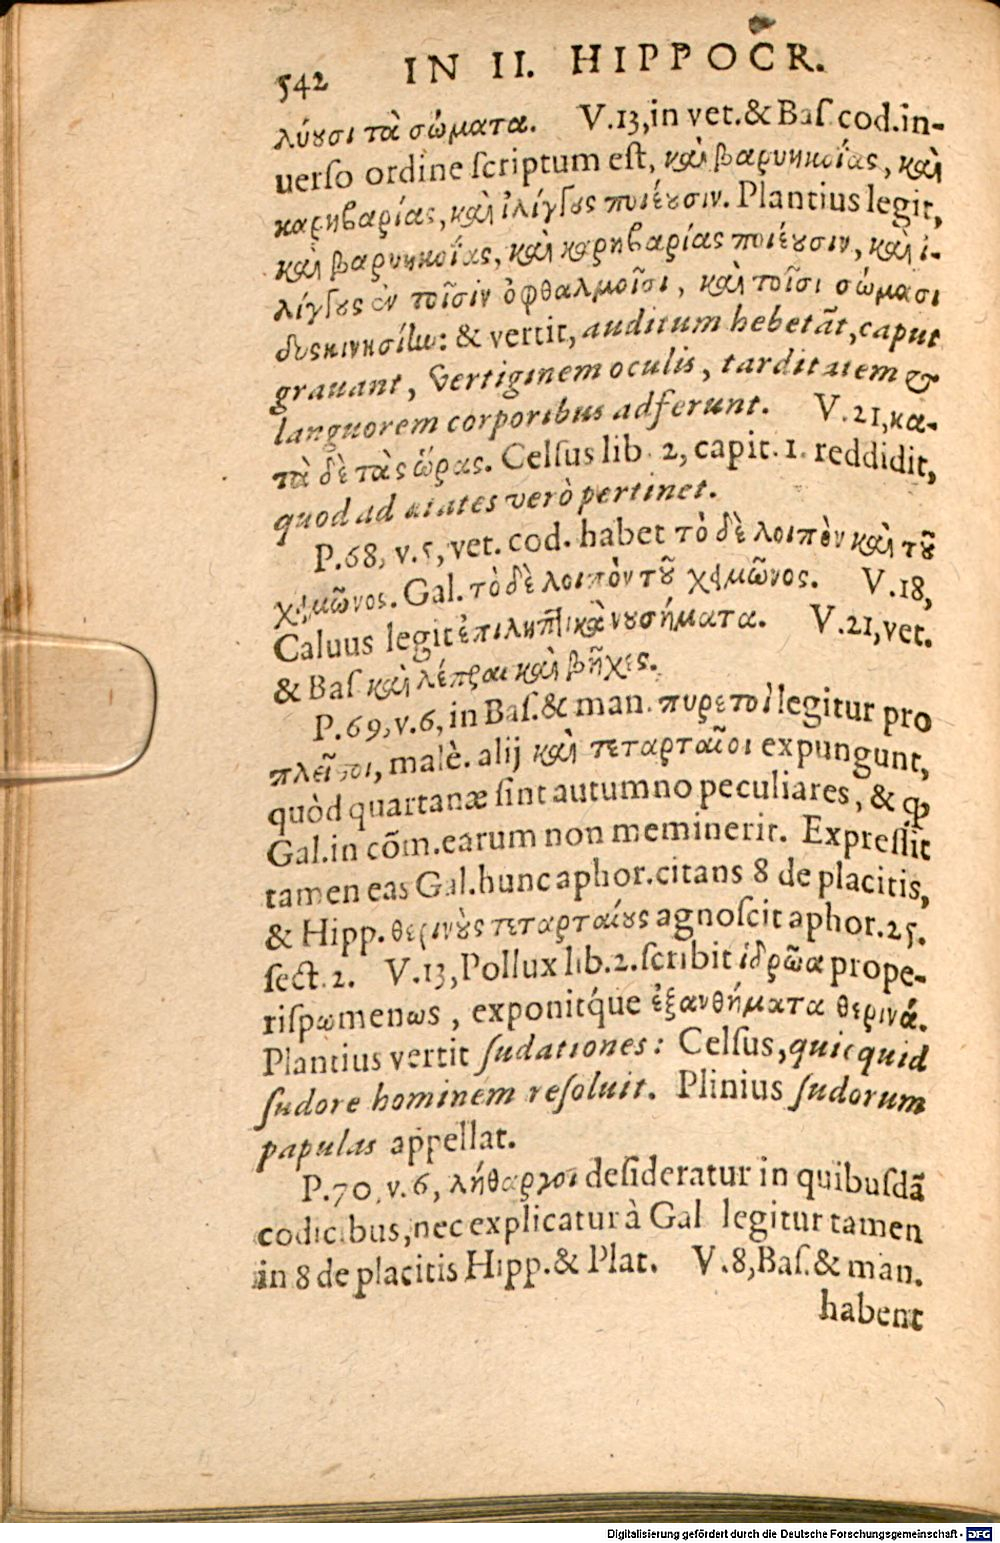 542 IN II. HIPPOCR.
λύουσι τὰ σώματα. V.13,in vet.& Baſ cod.in-
uerſo ordine ſcriptum eſt, καὶ βαρυηκοΐας, καὶ
καρηβαρίας, καὶ ἰλίγγους ποιέουσιν. Plantius legit,
καὶ βαρυηκοΐας, καὶ καρηβαρίας ποιέουσιν, καὶ ἰ-
λίγγους ἐν τοῖσιν ὀφθαλμοῖσι, καὶ τοῖσι σώμασι
δυσκινησίην: & vertit, auditum hebetāt, caput
grauant, vertiginem oculis, tarditatem &
languorem corporibus adferunt. V.21,κα-
τὰ δὲ τὰς ὥρας. Celſus lib. 2, capit. 1. reddidit,
quod ad ætates verò pertinet.
P.68, v.5, vet. cod. habet τὸ δὲ λοιπὸν καὶ τοῦ
χειμῶνος. Gal. τὸ δὲ λοιπὸν τοῦ χειμῶνος. V.18,
Caluus legit ἐπιληπτικὰ νουσήματα. V.21,vet.
& Baſ καὶ λέπραι καὶ βῆχες.
P.69,v.6, in Baſ.& man. πυρετοὶ legitur pro
πλεῖστοι, malè. alij καὶ τεταρταῖοι expungunt,
quòd quartanæ ſint autumno peculiares, & ꝙ
Gal.in cōm.earum non meminerit. Expreſſit
tamen eas Gal.hunc aphor.citans 8 de placitis,
& Hipp. θερινοὺς τεταρταίους agnoſcit aphor.25.
ſect.2. V.13,Pollux lib.2.ſcribit ἱδρῶα prope-
riſpωmenωs, exponitq́ue ἐξανθήματα θερινά.
Plantius vertit ſudationes: Celſus, quicquid
ſudore hominem reſoluit. Plinius ſudorum
papulas appellat.
P.70,v.6, λήθαργοι deſideratur in quibuſdā
codicibus,nec explicatur à Gal legitur tamen
in 8 de placitis Hipp.& Plat. V.8,Baſ.& man.
habent
Digitalisierung gefördert durch die Deutsche Forschungsgemeinschaft - DFG